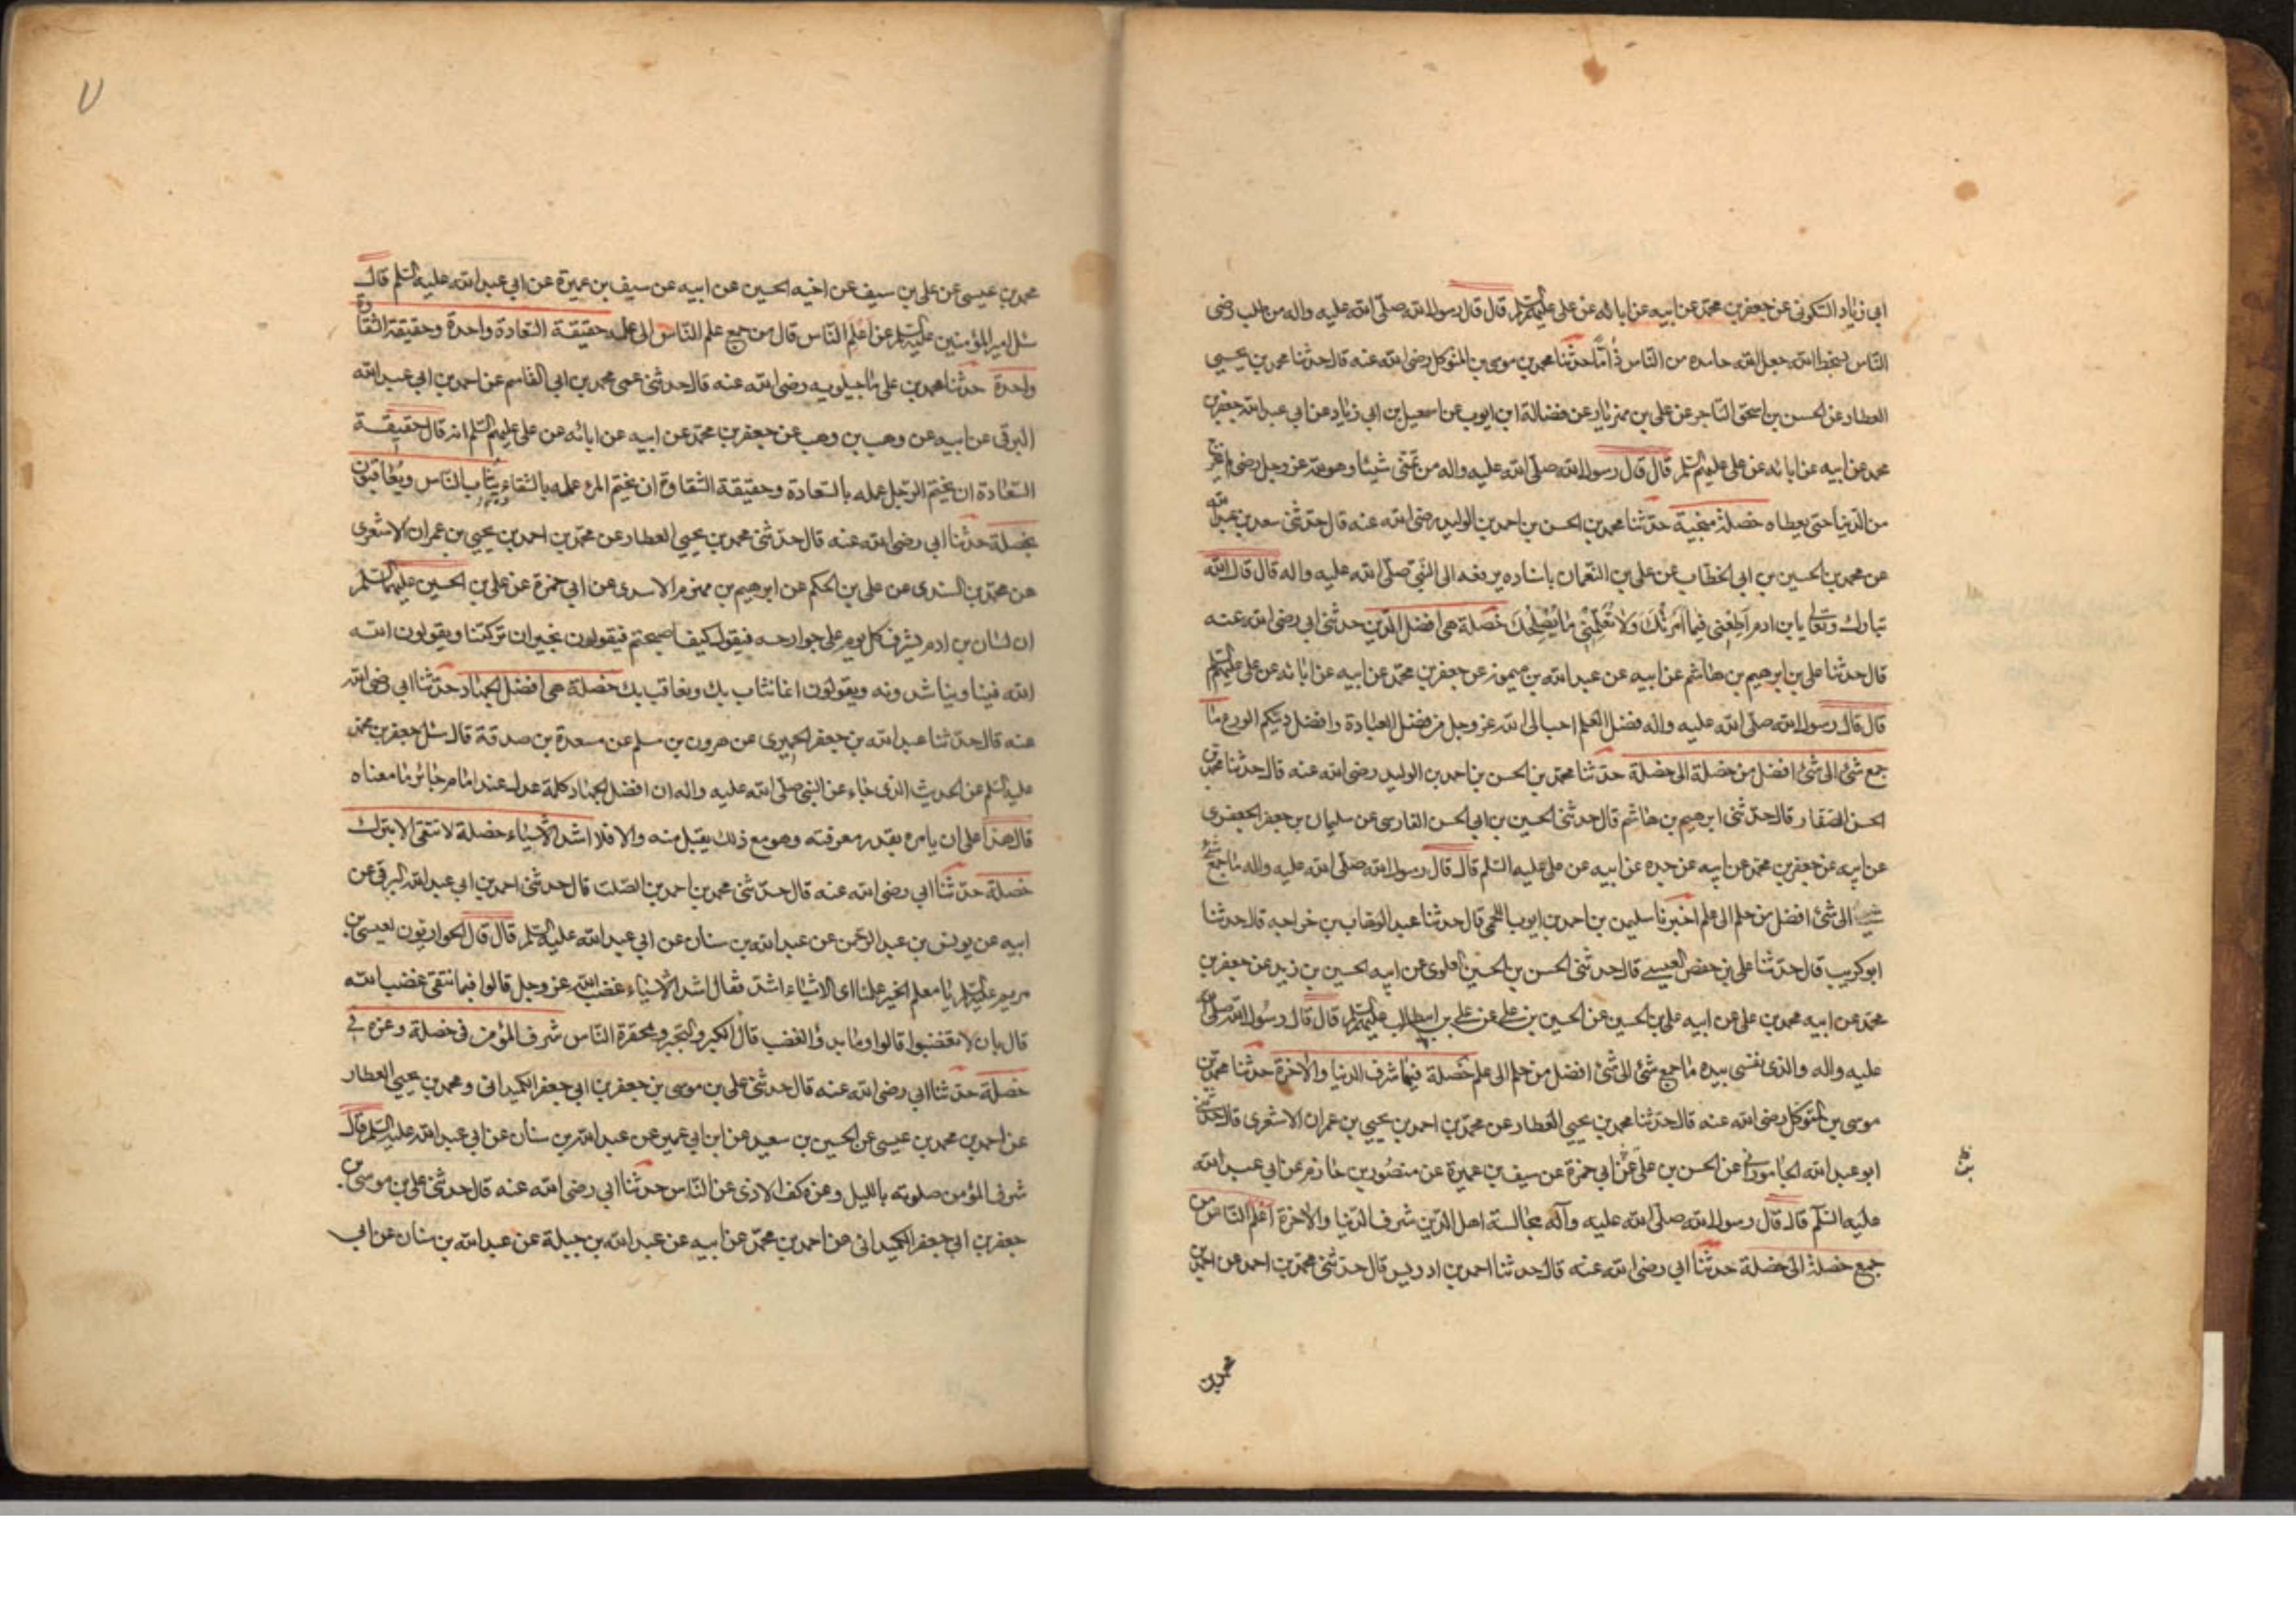 ابي زياد السكوني عن جعفر بن محمد عن ابيه عن ابائه عن علي عليهم السلم قال قال رسول الله صلى الله عليه واله من طلب رضى
الناس بسخط الله جعل الله حامده من الناس ذاما حدثنا محمد بن موسى بن المتوكل رضى الله عنه قال حدثنا محمد بن يحيى
العطار عن الحسن بن اسحق التاجر عن علي بن مهزيار عن فضالة ابن ايوب عن اسمعيل بن ابي زياد عن ابي عبد الله جعفر بن
محمد عن ابيه عن ابائه عن علي عليهم السلم قال قال رسول الله صلى الله عليه واله من تمنى شيئا وهو لله عز وجل رضى لم يخرج
من الدنيا حتى يعطاه خصلة منجية حدثنا محمد بن الحسن بن احمد بن الوليد رضى الله عنه قال حدثنى سعد بن عبد الله
عن محمد بن الحسين بن ابي الخطاب عن علي بن النعمان باسناده يرفعه الى النبي صلى الله عليه واله قال قال الله
تبارك وتعالى يا بن ادم اَطِعْنى فيما اَمَرْتُكَ وَلا تُعَلِّمْنى ما يُصْلِحُكَ خصلة هى افضل الدين حدثنى ابي رضى الله عنه
قال حدثنا علي بن ابرهيم بن هاشم عن ابيه عن عبد الله بن ميمون عن جعفر بن محمد عن ابيه عن ابائه عن علي عليهم السلم
قال قال رسول الله صلى الله عليه واله فضل العلم احب الى الله عز وجل من فضل العبادة وافضل دينكم الورع ما
جمع شئ الى شئ افضل من خصلة الى خصلة حدثنا محمد بن الحسن بن احمد بن الوليد رضى الله عنه قال حدثنا محمد بن
الحسن الصفار قال حدثنى ابرهيم بن هاشم قال حدثنى الحسين بن ابي الحسن الفارسى عن سليمان بن جعفر الجعفرى
عن ابيه عن جعفر بن محمد عن ابيه عن جده عن ابيه عن علي عليه السلم قال قال رسول الله صلى الله عليه واله ما جمع شئ
الى شئ افضل من حلم الى علم اخبرنا سليمن بن احمد بن ايوب اللخمى قال حدثنا عبد الوهاب بن خراجه قال حدثنا
ابو كريب قال حدثنا علي بن حفص العبسى قال حدثنى الحسن بن الحسين العلوى عن ابيه الحسين بن زيد عن جعفر بن
محمد عن ابيه محمد بن علي عن ابيه علي بن الحسين عن الحسين بن علي عن علي بن ابيطالب عليهم السلم قال قال رسول الله صلى الله
عليه واله والذى نفسى بيده ما جمع شئ الى شئ افضل من حلم الى علم خصلة فيها شرف الدنيا والاخرة حدثنا محمد بن
موسى بن المتوكل رضى الله عنه قال حدثنا محمد بن يحيى العطار عن محمد بن احمد بن يحيى بن عمران الاشعرى قال حدثنى
ابو عبد الله الجامورانى عن الحسن بن علي عن ابي حمزة عن سيف بن عميرة عن منصور بن حازم عن ابي عبد الله
عليه السلم قال قال رسول الله صلى الله عليه وآله مجالسة اهل الدين شرف الدنيا والاخرة اعلم الناس من
جمع خصلة الى خصلة حدثنا ابي رضى الله عنه قال حدثنا احمد بن ادريس قال حدثنى محمد بن احمد عن احمد بن
محمد بن
٧
محمد بن عيسى عن علي بن سيف عن اخيه الحسين عن ابيه عن سيف بن عميرة عن ابي عبد الله عليه السلم قال
سئل امير المؤمنين عليه السلم عن اعلم الناس قال من جمع علم الناس الى علمه حقيقة السعادة واحدة وحقيقة الشقاوة
واحدة حدثنا محمد بن علي ماجيلويه رضى الله عنه قال حدثنى عمى محمد بن ابي القاسم عن احمد بن ابي عبد الله
البرقى عن ابيه عن وهب بن وهب عن جعفر بن محمد عن ابيه عن ابائه عن علي عليهم السلم انه قال حقيقة
السعادة ان يختم الرجل عمله بالسعادة وحقيقة الشقاوة ان يختم المرء عمله بالشقاء يثاب الناس ويعاقبون
بخصلة حدثنا ابي رضى الله عنه قال حدثنى محمد بن يحيى العطار عن محمد بن احمد بن يحيى بن عمران الاشعرى
عن محمد بن السندى عن علي بن الحكم عن ابرهيم بن مهزم الاسدى عن ابي حمزة عن علي بن الحسين عليهما السلم
ان لسان بن ادم يشرف كل يوم على جوارحه فيقول كيف اصبحتم فيقولون بخير ان تركتنا ويقولون الله
الله فينا ويناشدونه ويقولون انما نثاب بك ونعاقب بك خصلة هى افضل الجهاد حدثنا ابي رضى الله
عنه قال حدثنا عبد الله بن جعفر الحميرى عن هرون بن مسلم عن مسعدة بن صدقة قال سئل جعفر بن محمد
عليه السلم عن الحديث الذى جاء عن النبي صلى الله عليه واله ان افضل الجهاد كلمة عدل عند امام جائر ما معناه
قال هذا على ان يامره بقدر معرفته وهو مع ذلك يقبل منه والا فلا اشد الاشياء خصلة لا تتقى الا بترك
خصلة حدثنا ابي رضى الله عنه قال حدثنى محمد بن احمد بن الصلت قال حدثنى احمد بن ابي عبد الله البرقى عن
ابيه عن يونس بن عبد الرحمن عن عبد الله بن سنان عن ابي عبد الله عليه السلم قال قال الحواريون لعيسى بن
مريم عليه السلم يا معلم الخير علمنا اى الاشياء اشد فقال اشد الاشياء غضب الله عز وجل قالوا فبما نتقى غضب الله
قال بان لا تغضبوا قالوا وما بدؤ الغضب قال الكبر والتجبر ومحقرة الناس شرف المؤمن فى خصلة وعزه فى
خصلة حدثنا ابي رضى الله عنه قال حدثنى علي بن موسى بن جعفر بن ابي جعفر الكميدانى ومحمد بن يحيى العطار
عن احمد بن محمد بن عيسى عن الحسين بن سعيد عن ابن ابي عمير عن عبد الله بن سنان عن ابي عبد الله عليه السلم قال
شرف المؤمن صلوته بالليل وعزه كف الاذى عن الناس حدثنا ابي رضى الله عنه قال حدثنى علي بن موسى بن
جعفر بن ابي جعفر الكميدانى عن احمد بن محمد عن ابيه عن عبد الله بن جبلة عن عبد الله بن سنان عن ابي